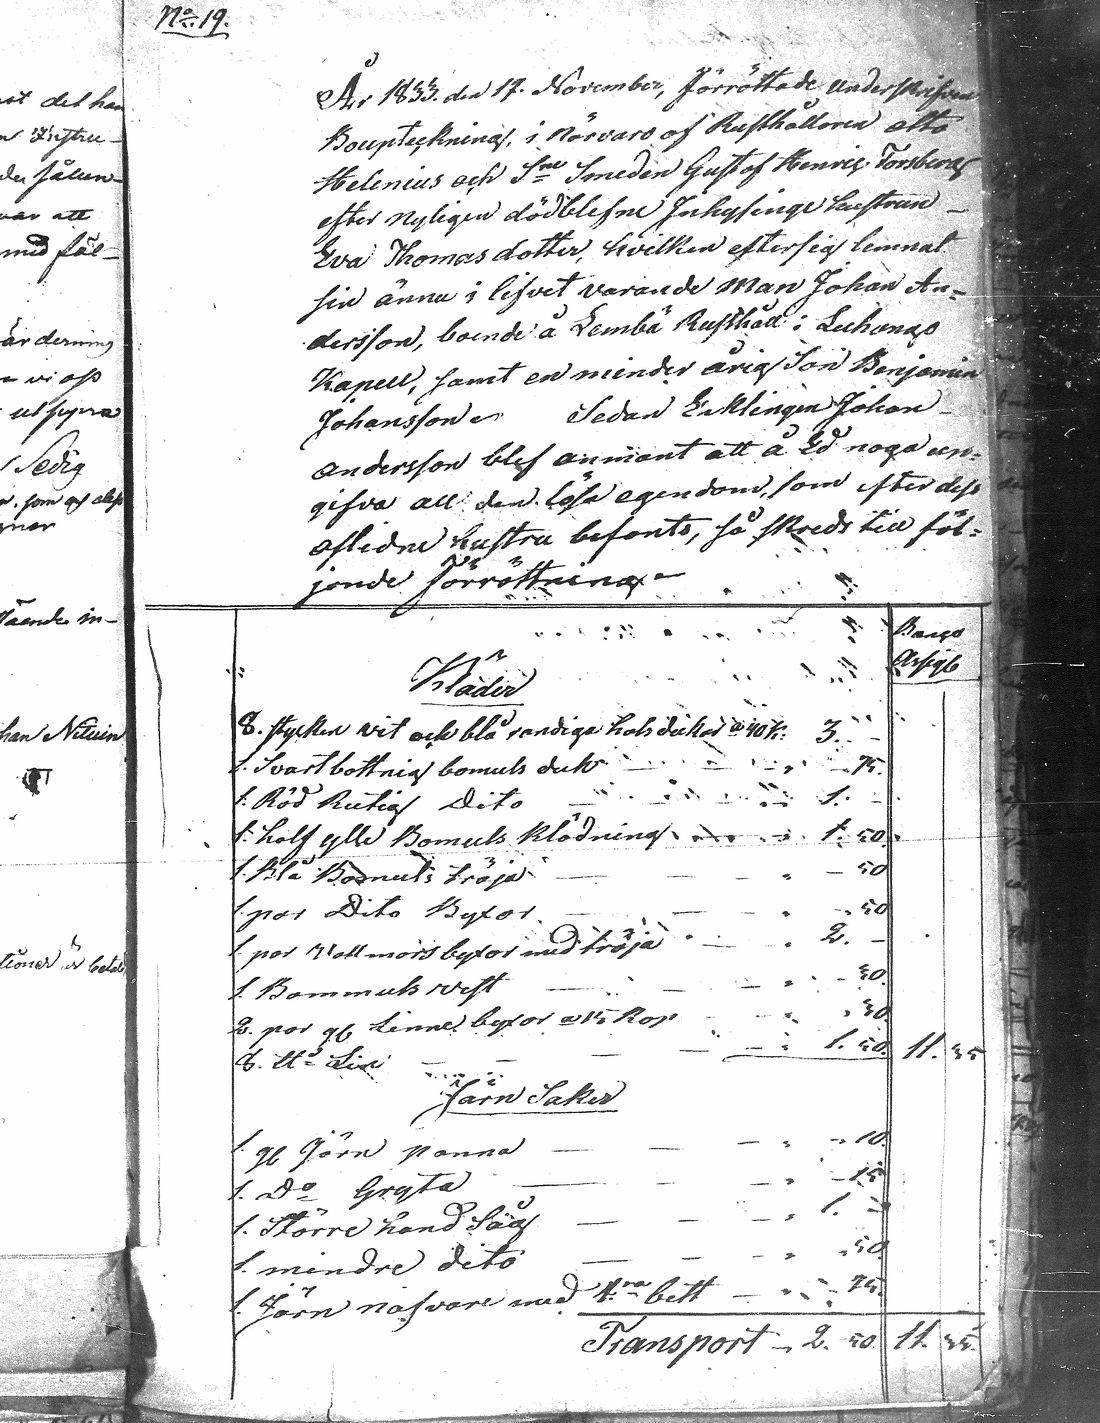 No. 19.
År 1833. den 17. November, förröttade underskrifven
Bouptekning, i nörvaro af Rusthållaren Otto
Helenius och Sne Smeden Gustaf Henrig Forsberg
efter nyligen dödblefne Inhysinge hustrun
Eva Thomasdotter, hvilken eftersig lemnat
sin ännu i lifvet varande Man Johan An=
dersson, boende å Lembå Rusthåll i
Kapell, samt en minder årig Son Benjamin
Johansson Sedan Enklingen Johan
andersson blef anmant att å Ed noga un=
gifva all den lösa egendom, som efter dess
aflidne hustru befants, så skreds till föl=
jonde förröttning
Banco
Assigb
Kläder
8. stycken vit och blå randiga halsdukar a 40 k. 3. -
1. Svartbottnig bomuls duk - 75.
1. Röd Rutig Dito 1. -
1. half ylle Bomuls klödning 1. 50.
1. Blå Bomuls tröja - 50
1. par Dito Byxor 50
1. par Vallmars byxor med tröja 2. -
1. Bommuls vest 50.
2. par gl Linne byxor a 15 Kop 30.
8. Lin 1. 50. 11. 55
Järn Saker
1. gl Jörn panna - 10.
1. Do Gryta - 15
1. Större hand Såg 1. -
1. mindre dito 50.
1. Jörn nafvare med 4ra bett - 75.
Transport - 2. 50. 11. 55.
ast det han
när vi oss
utsyna
med föl-
var att
han